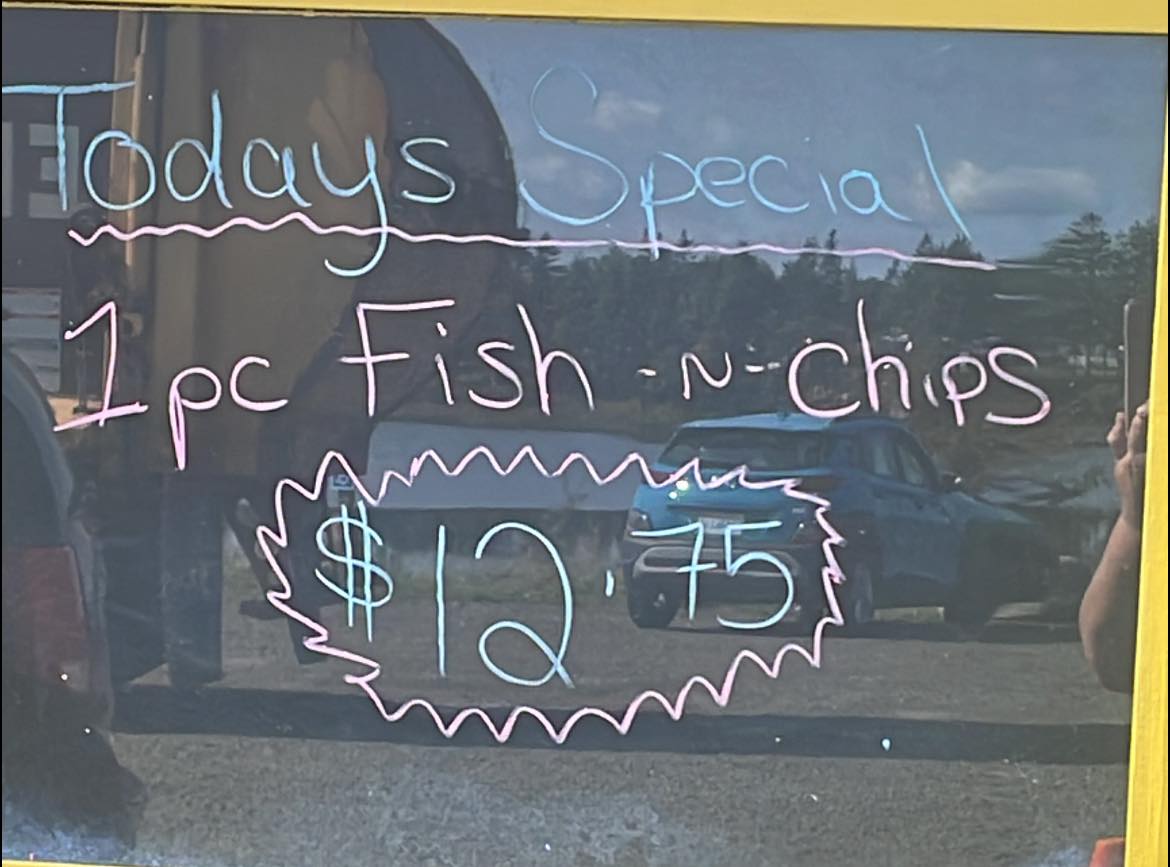 Todays Special
1pc Fish -N- Chips
$12.75